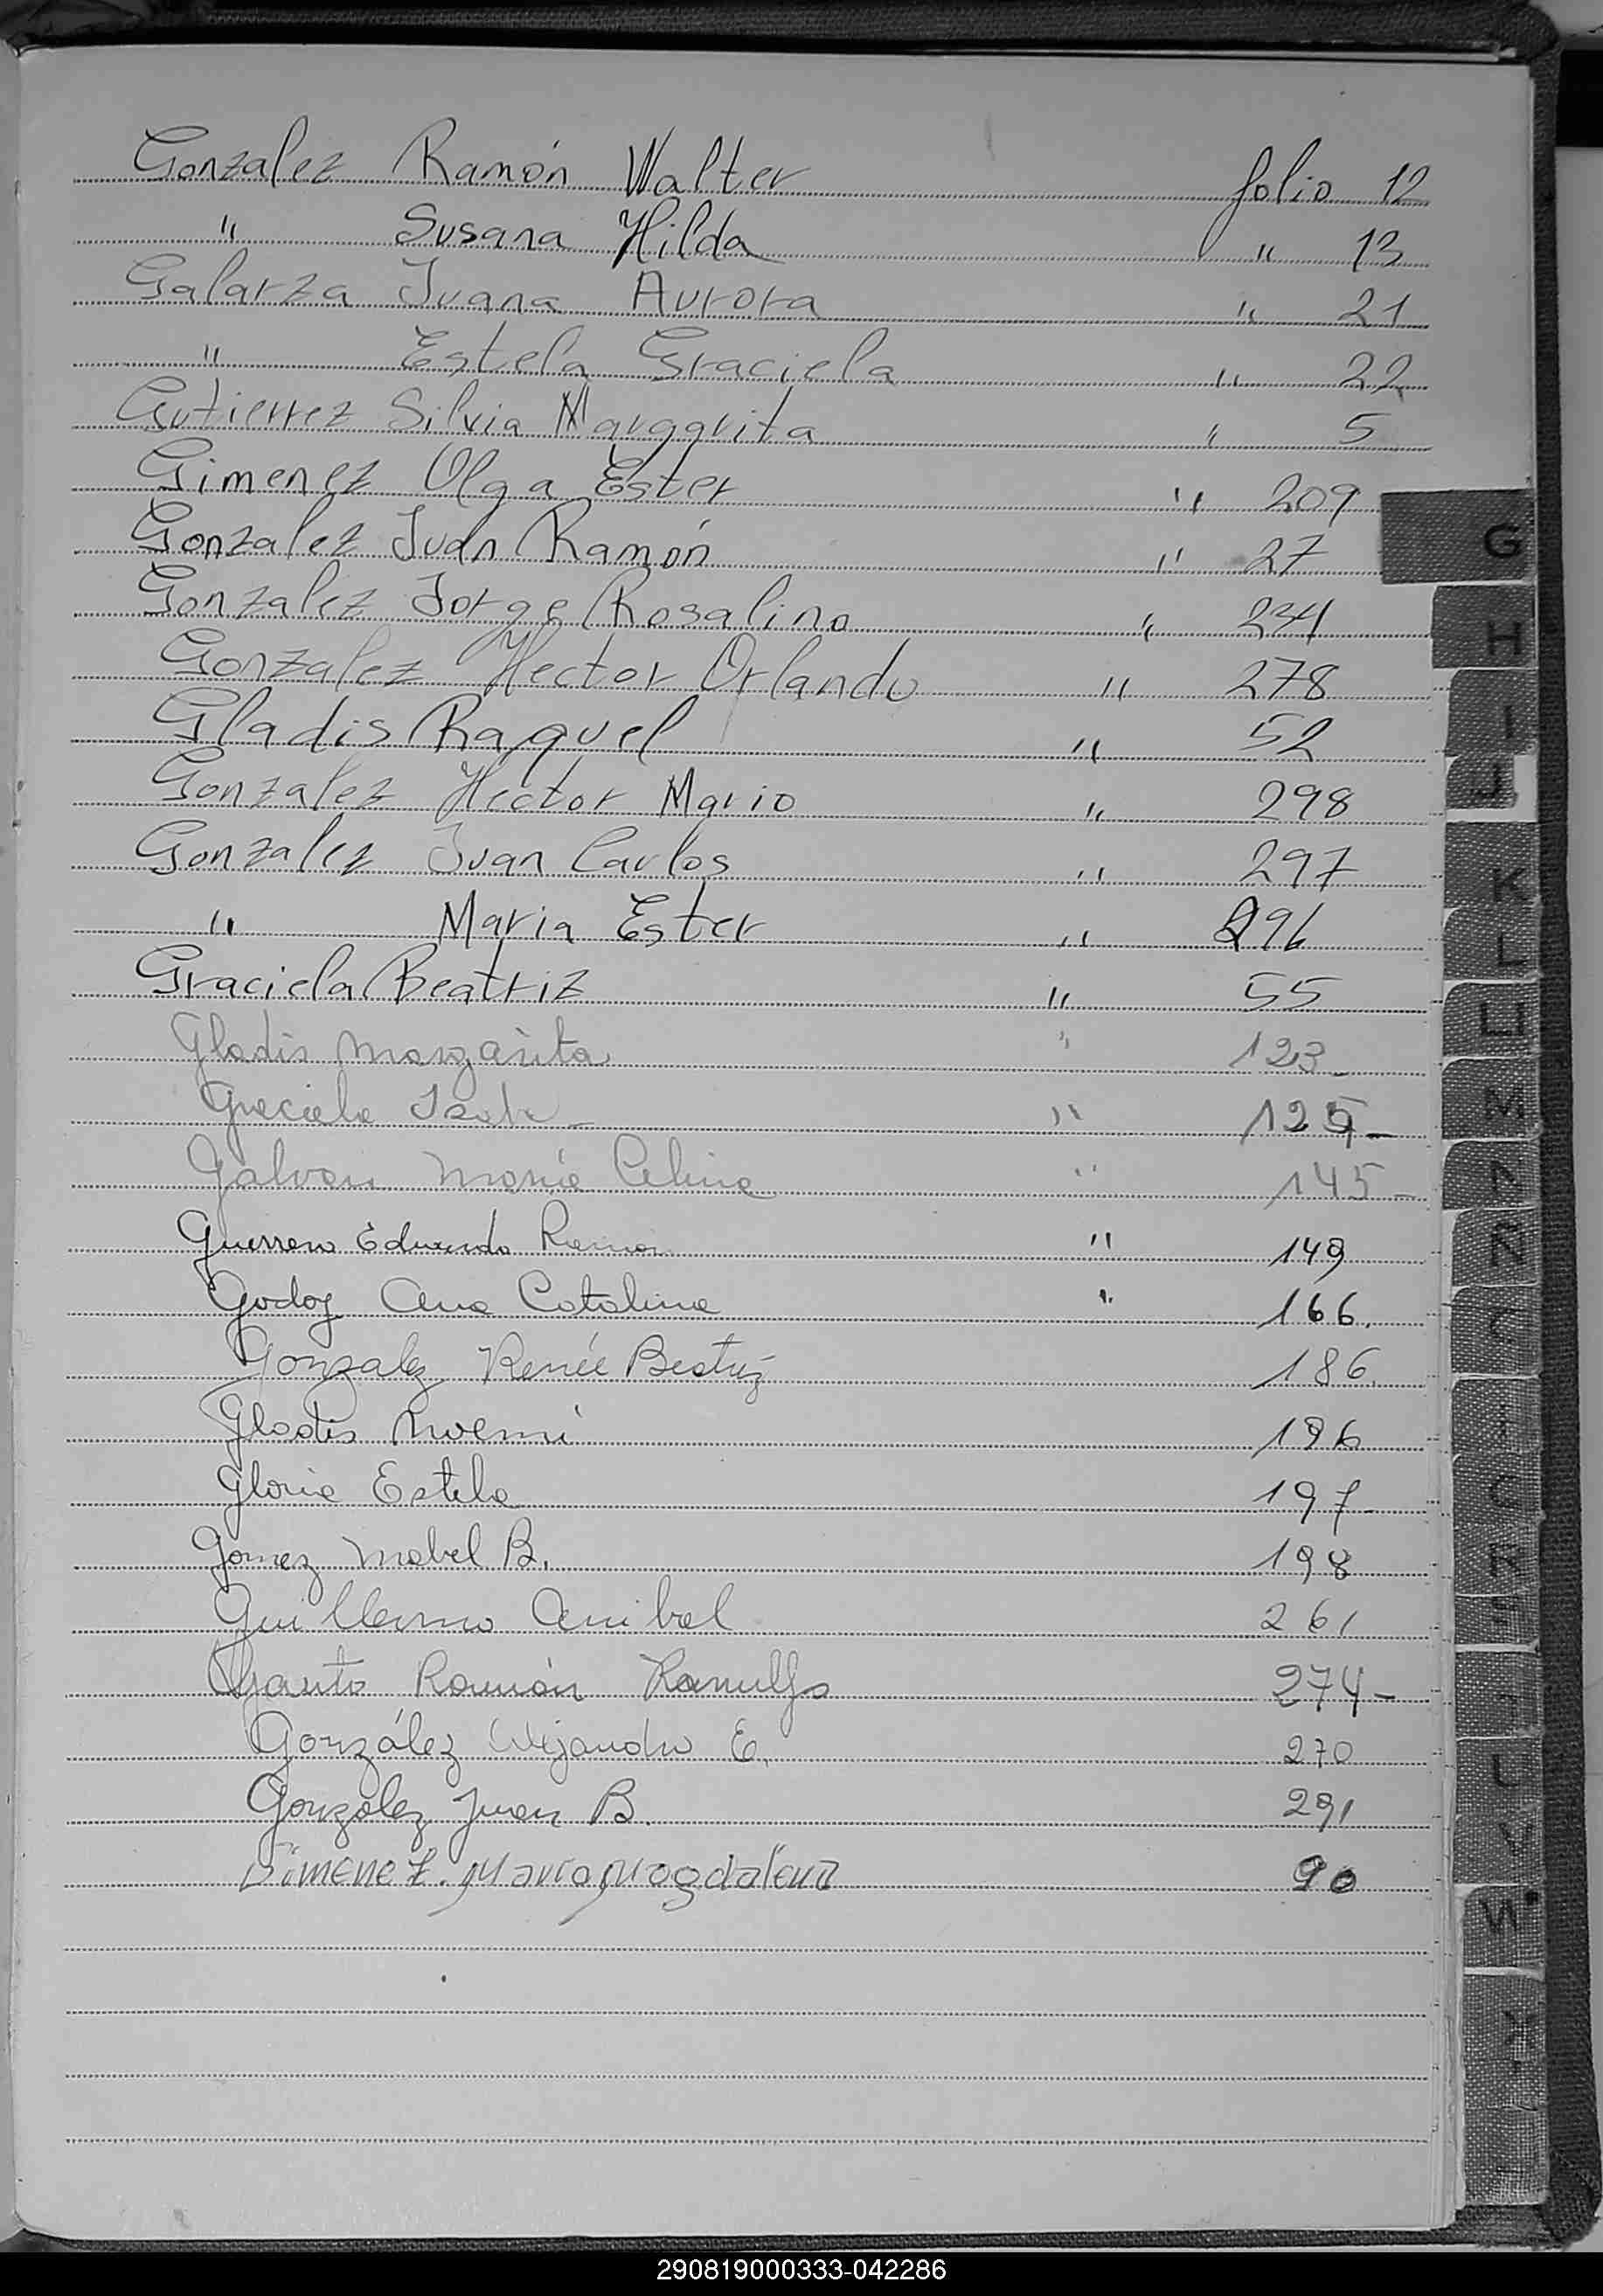 Gonzalez Ramón Walter folio 12
" Susana Hilda " 13
Galarza Juana Aurora " 21
" Estela Graciela " 22
Gutierrez Silvia Margarita " 5
Gimenez Olga Ester " 209
Gonzalez Juan Ramón " 27
Gonzalez Jorge Rosalino " 234
Gonzalez Hector Orlando " 278
Gladis Raquel " 52
Gonzalez Hector Mario " 298
Gonzalez Juan Carlos " 297
" Maria Ester " 296
Graciela Beatriz " 55
Gladis Margarita " 123
Graciela " 125-
Galvan María Celina " 145-
Guerrero Eduardo Ramon " 149
Godoy Ana Catalina " 166.
Gonzalez Renée Beatriz 186.
Gladis Noemí 196
Gloria Estela 197-
Gomez Mabel B. 198
Guillermo Anibal 261
Ramón Ranulfo 274-
González Alejandro E. 270
González Juan B. 291
Gimenez. Maria Magdalena 90
G
H
I
J
K
L
LL
M
N
Ñ
O
R
U
V
W
X
290819000333-042286